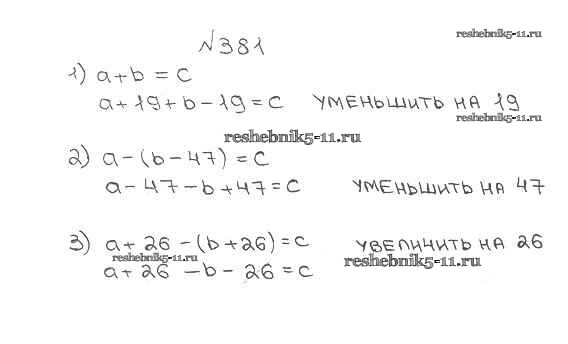 reshebnik5-11.ru
№381
1) a+b=c
a+19+b-19=c УМЕНЬШИТЬ НА 19
reshebnik5-11.ru
reshebnik5-11.ru
2) a-(b-47)=c
a-47-b+47=c УМЕНЬШИТЬ НА 47
3) a+26-(b+26)=c УВЕЛИЧИТЬ НА 26
reshebnik5-11.ru
reshebnik5-11.ru
a+26-b-26=c